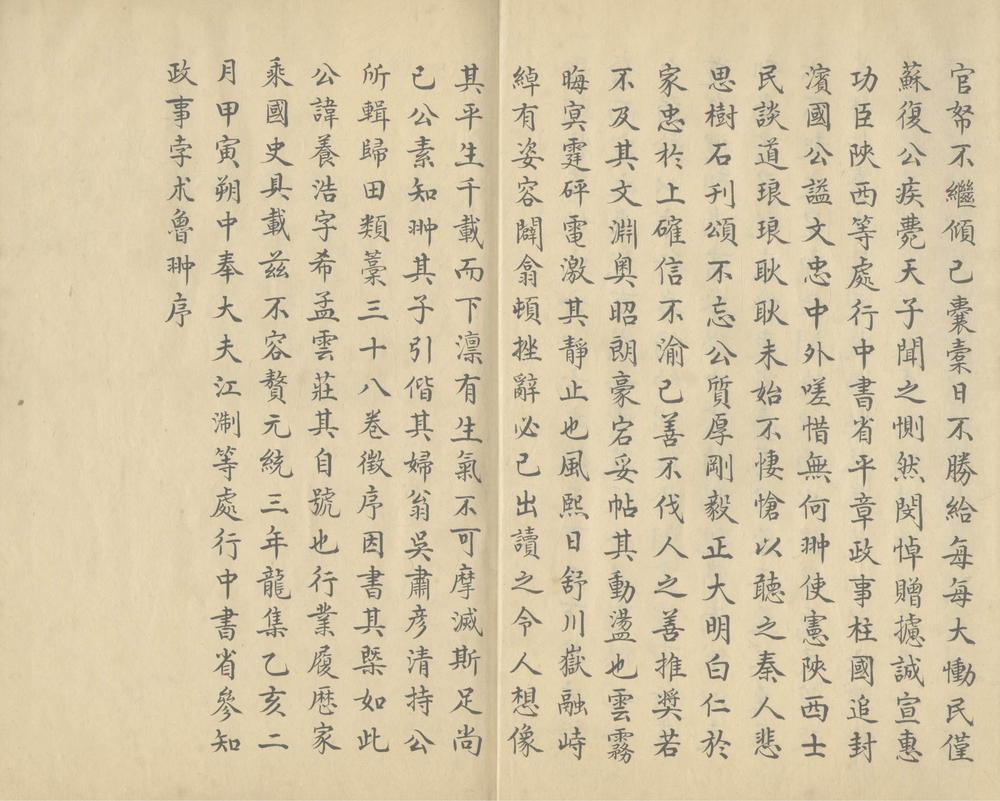 官帑不繼傾己囊橐日不勝給每每大慟民僅
蘇復公疾薨天子聞之惻然閔悼贈攄誠宣惠
功臣陜西等處行中書省平章政事柱國追封
濱國公謚文忠中外嗟惜無何翀使憲陜西士
民談道琅琅耿耿未始不悽愴以聽之秦人悲
思樹石刊頌不忘公質厚剛毅正大明白仁於
家忠於上確信不渝己善不伐人之善推奬若
不及其文淵奧昭朗豪宕妥帖其動盪也雲霧
晦冥霆砰電激其靜止也風熙日舒川嶽融峙
綽有姿容闢翕頓挫辭必己出讀之令人想像
其平生千載而下凛有生氣不可摩滅斯足尚
已公素知翀其子引偕其婦翁吳肅彦清持公
所輯歸田類藁三十八卷徵序因書其槩如此
公諱養浩字希孟雲莊其自號也行業履歴家
乘國史具載兹不容贅元統三年龍集乙亥二
月甲寅朔中奉大夫江淛等處行中書省參知
政事孛朮魯翀序